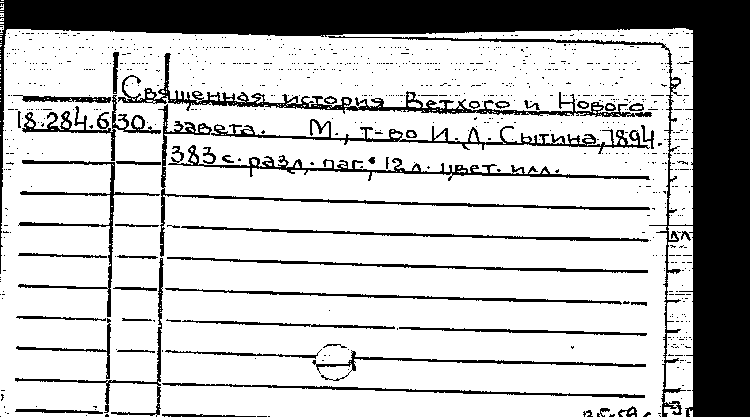 Священная история Ветхого и Нового
18.284.6.30. завета. М., т-во И.Д. Сытина, 1894.
383 с. разл. паг., 12 л. цвет. илл.